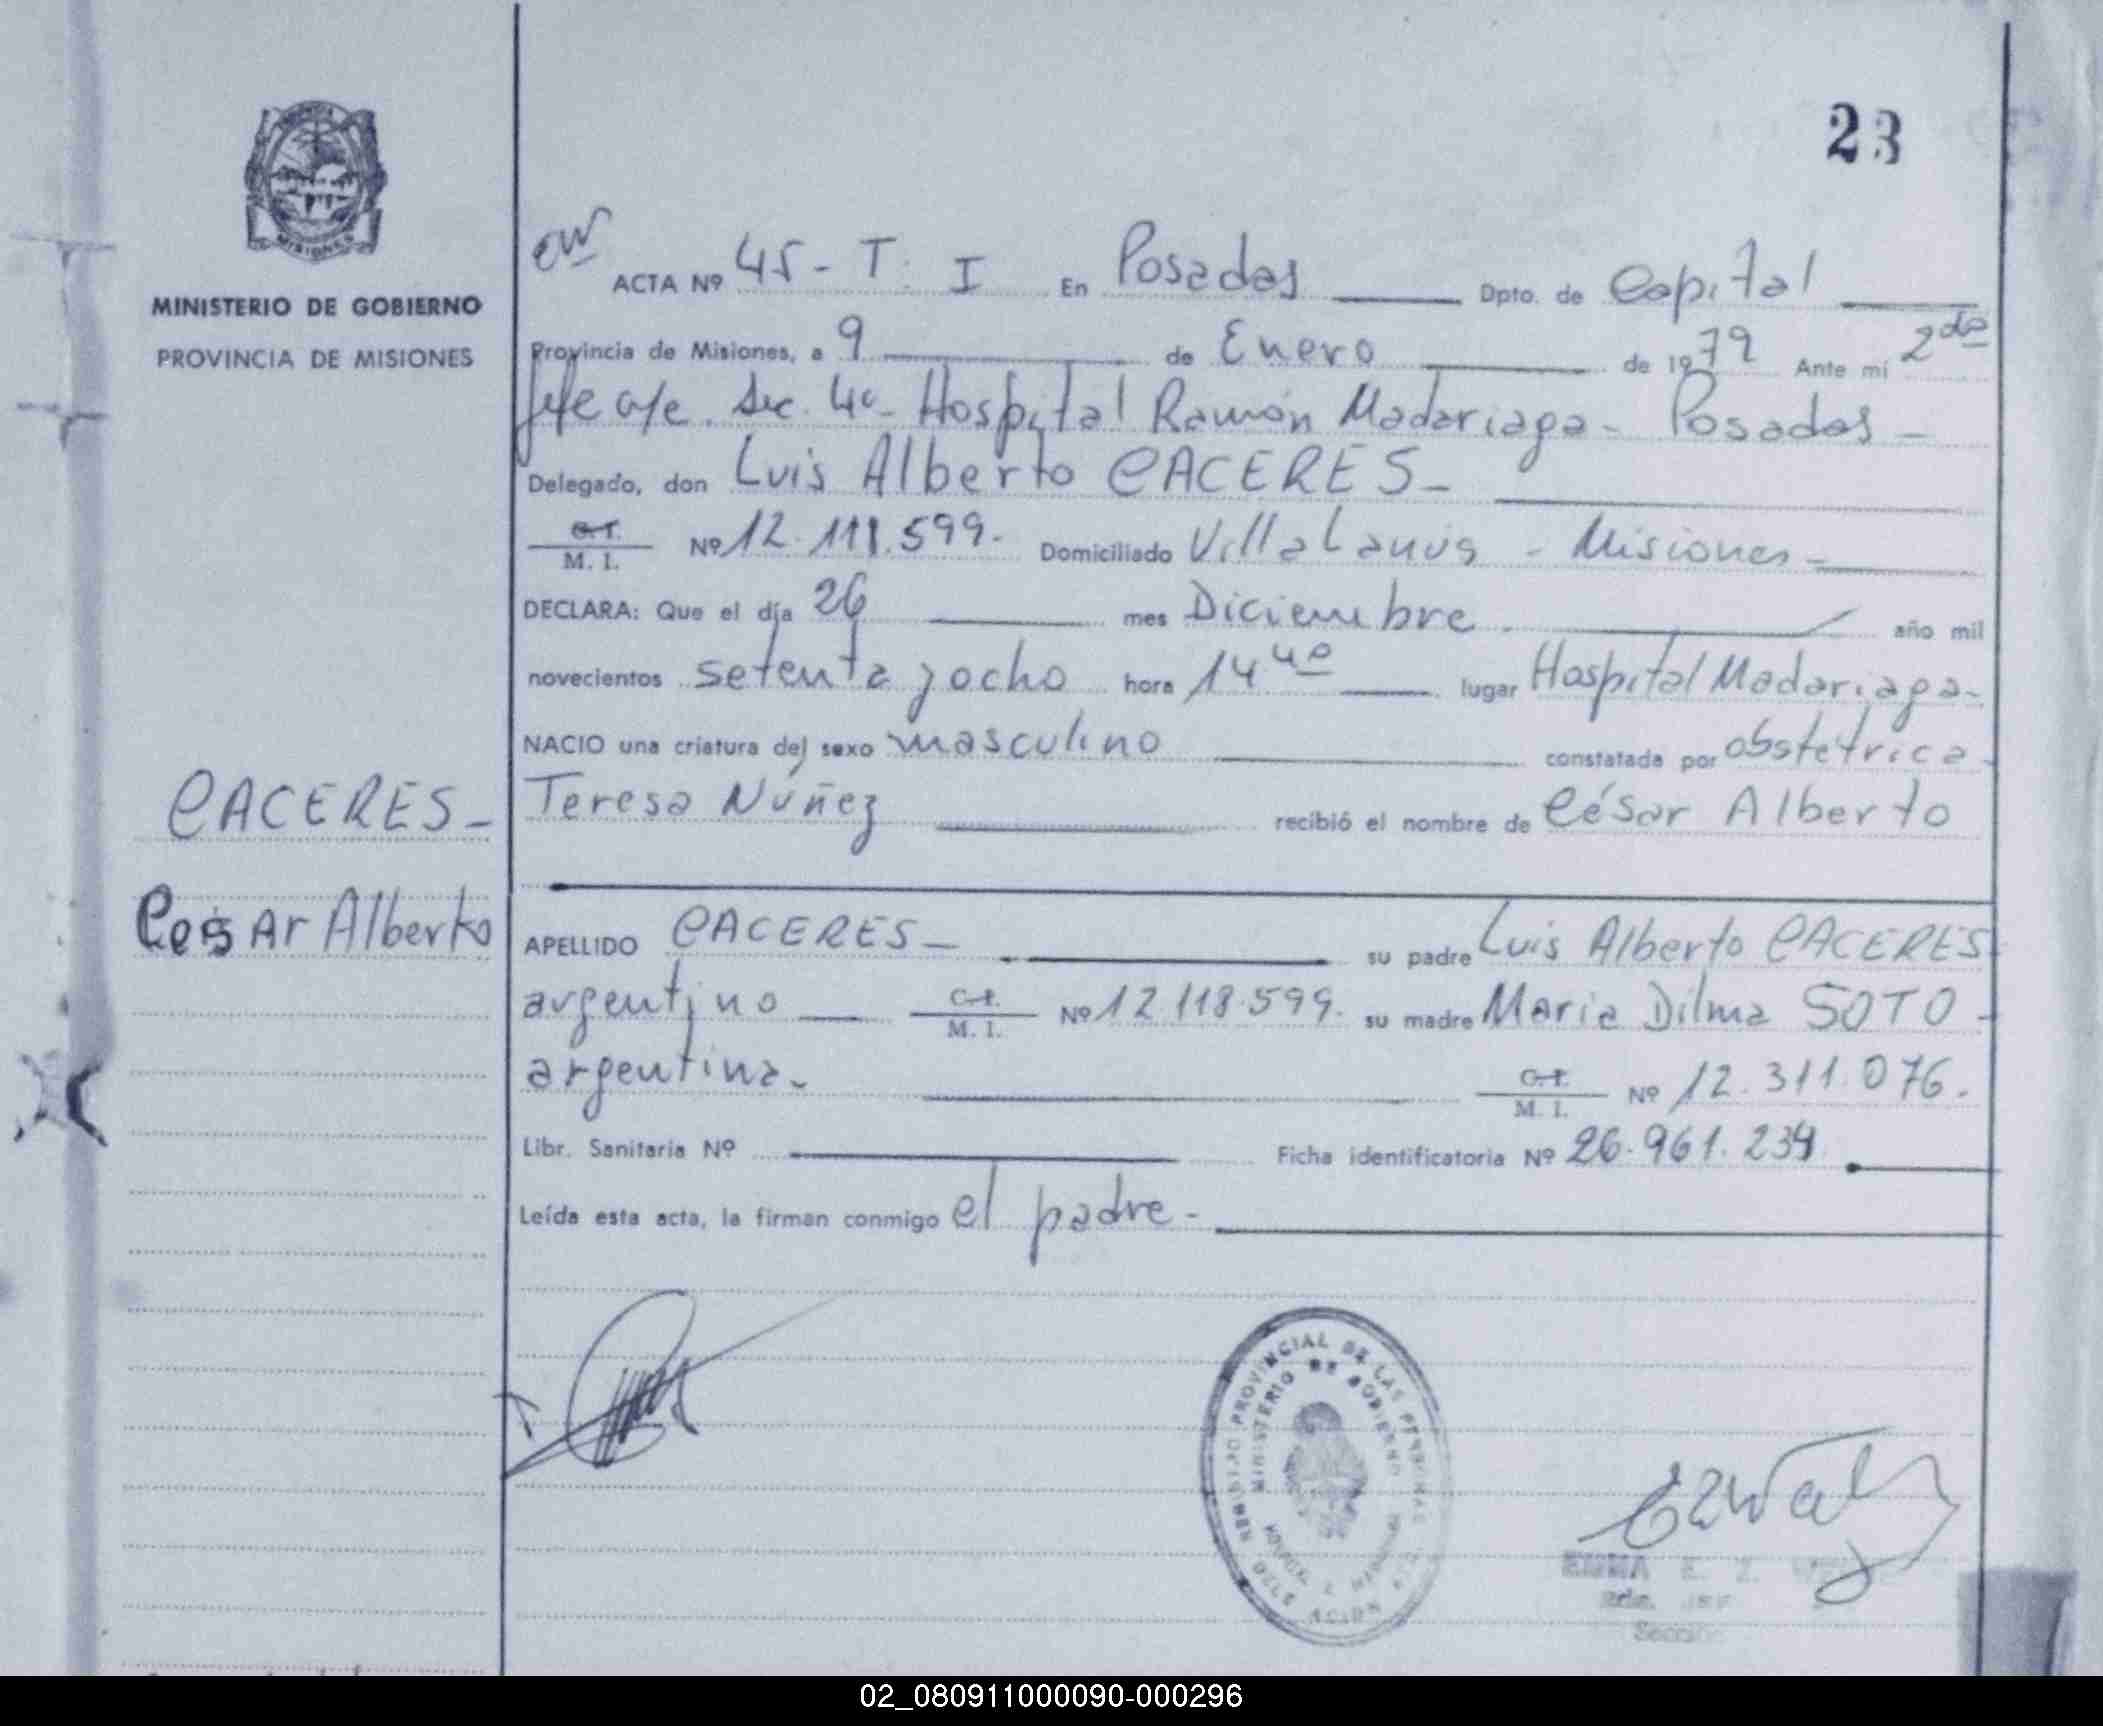 23
MISIONES
MINISTERIO DE GOBIERNO
PROVINCIA DE MISIONES
ACTA Nº 45 - T. I En Posadas Dpto. de Capital
Provincia de Misiones, a 9 de Enero de 1979 Ante mí 2da
Jefe a/c. Sec. 4a - Hospital Ramón Madariaga - Posadas -
Delegado, don Luis Alberto CACERES -
C. I. M. I. Nº 12.118.599. Domiciliado Villa Lanús - Misiones -
DECLARA: Que el día 26 mes Diciembre año mil
novecientos setenta y ocho hora 14 40 lugar Hospital Madariaga -
NACIO una criatura del sexo masculino constatada por obstétrica
CACERES -
Teresa Núñez recibió el nombre de César Alberto
César Alberto
APELLIDO CACERES - su padre Luis Alberto CACERES
argentino C. I. M. I. Nº 12.118.599. su madre Maria Dilma SOTO -
argentina - C. I. M. I. Nº 12.311.076.
Libr. Sanitaria Nº Ficha identificatoria Nº 26.961.234
Leída esta acta, la firman conmigo el padre -
PROVINCIAL DE LAS PERSONAS
MINISTERIO DE GOBIERNO
EMMA E. Z.
2da. JEF
Sección
02_080911000090-000296